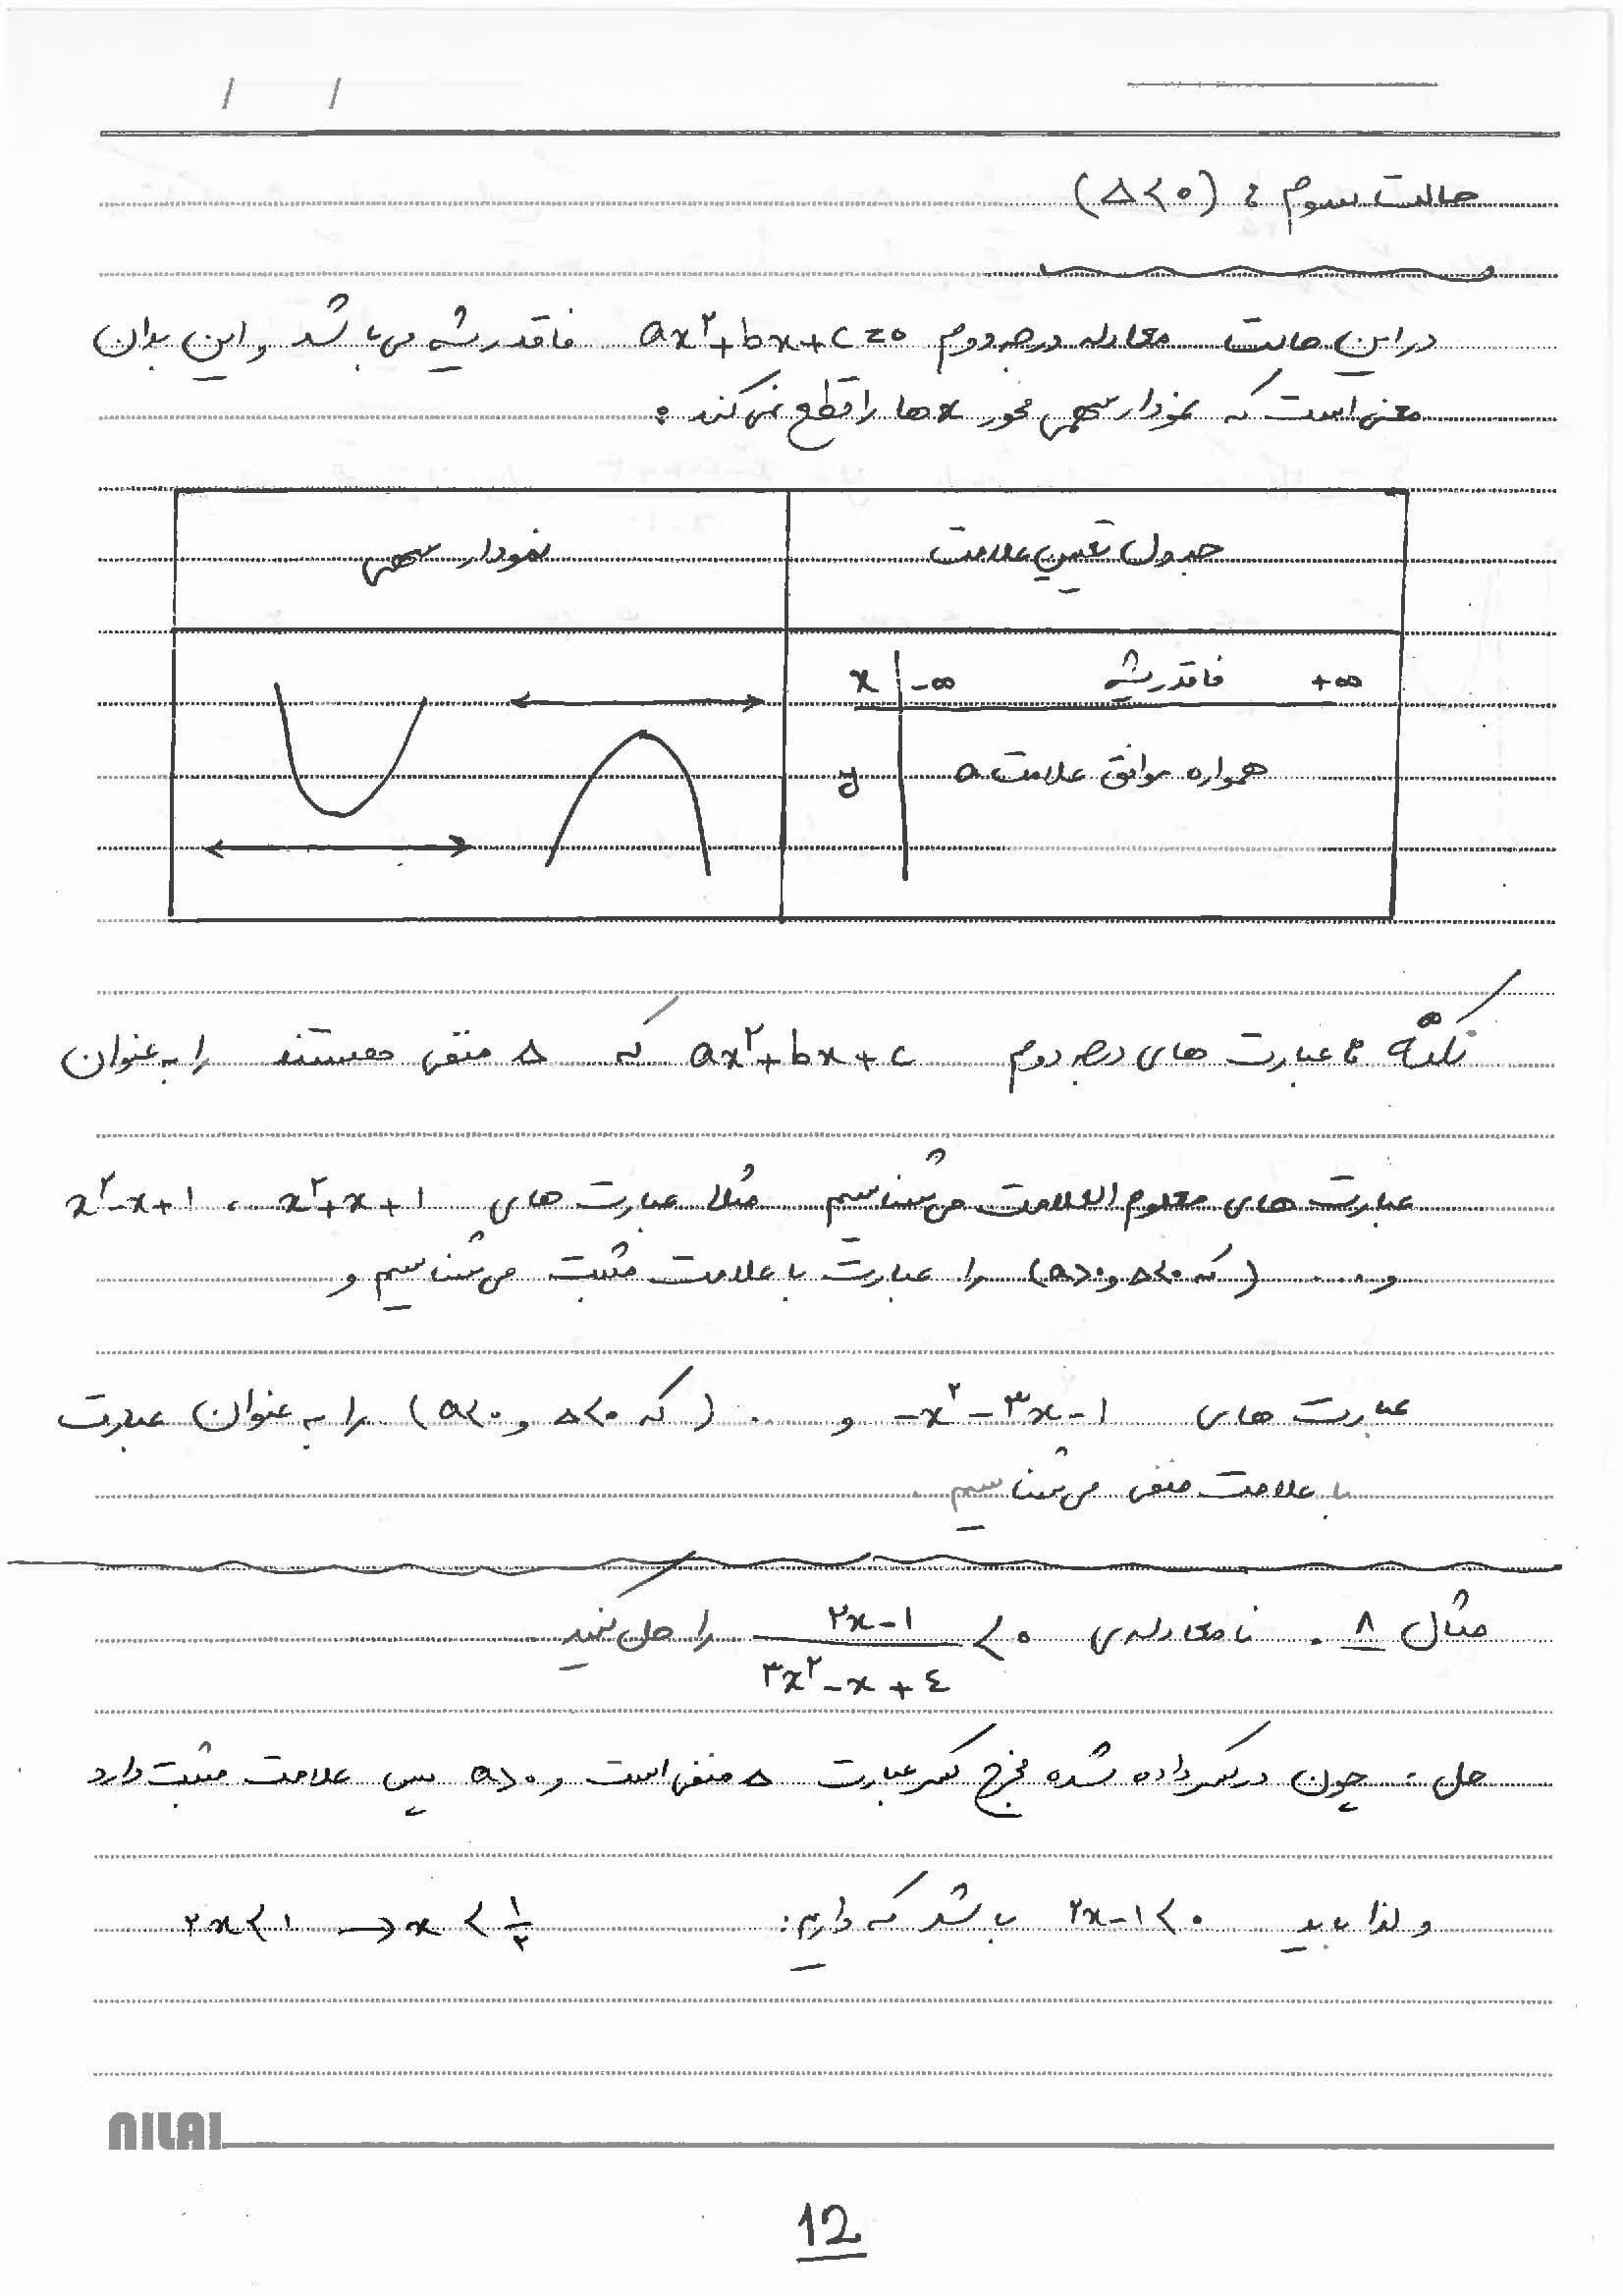 / /
حالت سوم : (Δ<٥)
در این حالت معادله درجه دوم ax²+bx+c=٥ فاقد ریشه می باشد و این بدان
معنی است که نمودار سهمی محور x ها را قطع نمی کند :
جدول تعیین علامت نمودار سهمی
x -∞ فاقد ریشه +∞
y همواره موافق علامت a
نکته : عبارت های درجه دوم ax²+bx+c که Δ منفی هستند را به عنوان
عبارت های معلوم العلامت می شناسیم مثلا عبارت های x²+x+۱ ، x²-x+۱
و .... (که Δ<۰ و a>۰) را عبارت با علامت مثبت می شناسیم و
عبارت های -x²-۳x-۱ و .... (که Δ<۰ و a<۰) را به عنوان عبارت
با علامت منفی می شناسیم .
مثال ۸ . نامعادله ی (۲x-۱)/(۳x²-x+٤) < ۰ را حل کنید
حل : چون در کسر داده شده مخرج کسر عبارت Δ منفی است و a>۰ پس علامت مثبت دارد
و لذا باید ۲x-۱<۰ باشد که داریم : ۲x<۱ → x<۱/۲
NILAI
12